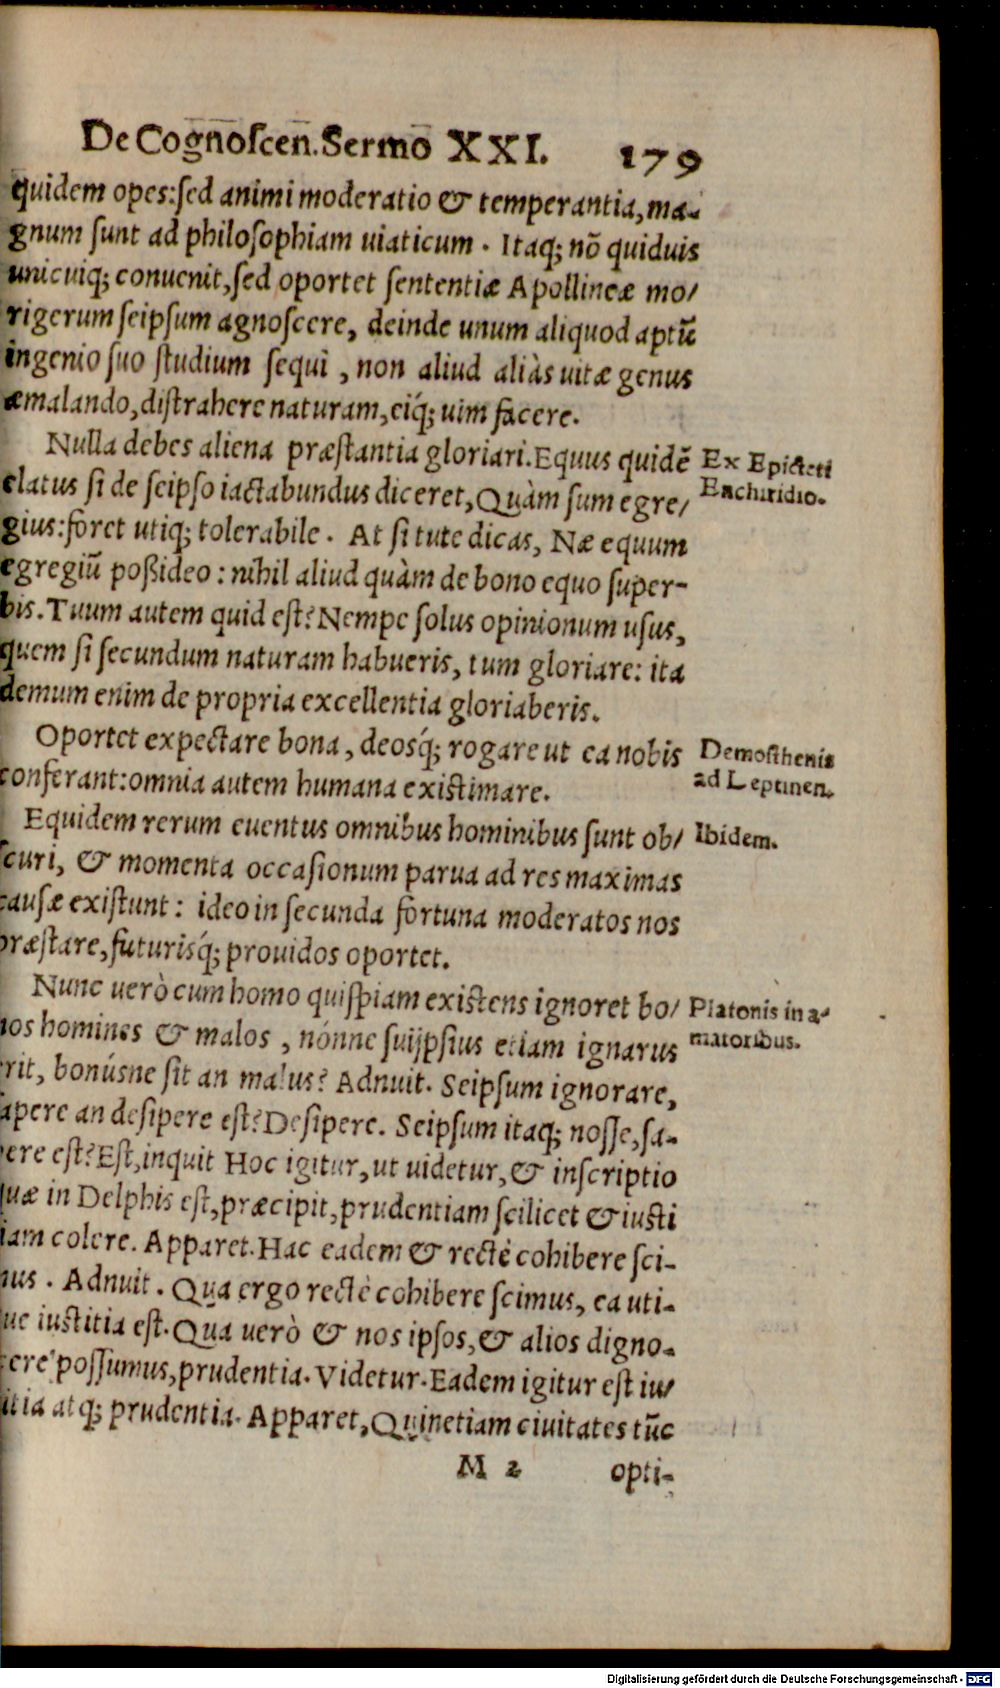 De Cognoscen. Sermo XXI. 179
quidem opes: sed animi moderatio & temperantia, ma-
gnum sunt ad philosophiam uiaticum. Itaq; nõ quiduis
unicuiq; conuenit, sed oportet sententiæ Apollineæ mo/
rigerum seipsum agnoscere, deinde unum aliquod aptũ
ingenio suo studium sequi, non aliud aliàs uitæ genus
æmalando, distrahere naturam, eiq́; uim facere.
Nulla debes aliena præstantia gloriari. Equus quidẽ
elatus si de seipso iactabundus diceret, Quàm sum egre/
gius: foret utiq; tolerabile. At si tute dicas, Næ equum
egregiũ poßideo: nihil aliud quàm de bono equo super-
bis. Tuum autem quid est? Nempe solus opinionum usus,
quem si secundum naturam habueris, tum gloriare: ita
demum enim de propria excellentia gloriaberis.
Ex Epicteti
Enchiridio.
Oportet expectare bona, deosq́; rogare ut ea nobis
conferant: omnia autem humana existimare.
Demosthenis
ad Leptinen.
Equidem rerum euentus omnibus hominibus sunt ob/
scuri, & momenta occasionum parua ad res maximas
causæ existunt: ideo in secunda fortuna moderatos nos
præstare, futurisq́; prouidos oportet.
Ibidem.
Nunc uerò cum homo quispiam existens ignoret bo/
nos homines & malos, nónne suijpsius etiam ignarus
erit, bonúsne sit an malus? Adnuit. Seipsum ignorare,
sapere an desipere est? Desipere. Seipsum itaq; nosse, sa-
pere est? Est, inquit Hoc igitur, ut uidetur, & inscriptio
quæ in Delphis est, præcipit, prudentiam scilicet & iusti
tiam colere. Apparet. Hac eadem & rectè cohibere sci-
mus. Adnuit. Qua ergo rectè cohibere scimus, ea uti-
que iustitia est. Qua uerò & nos ipsos, & alios digno-
cere possumus, prudentia. Videtur. Eadem igitur est iu/
titia atq; prudentia. Apparet, Quinetiam ciuitates tũc
Platonis in a-
matoribus.
M 2 opti-
Digitalisierung gefördert durch die Deutsche Forschungsgemeinschaft - DFG